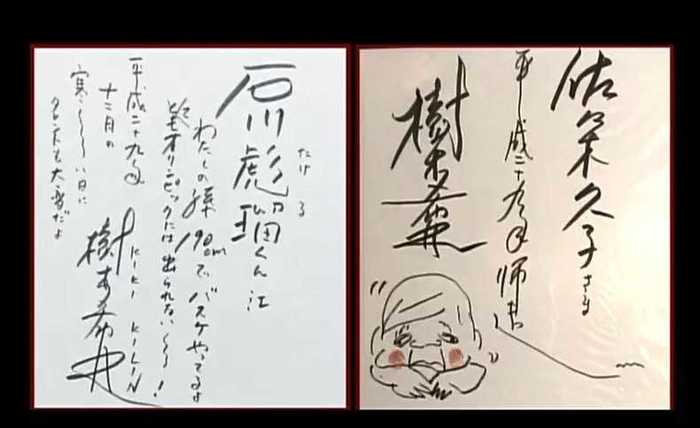 石川彪瑠くん江
たける
わたしの孫190cmでバスケやってるよ
とてもオリンピックには出られない〜〜!
平成二十九年
十二月の
寒い〜〜い日に
樹木希林
KIKI KILIN
佐々木久子さま
平成二十九年師走
樹木希林